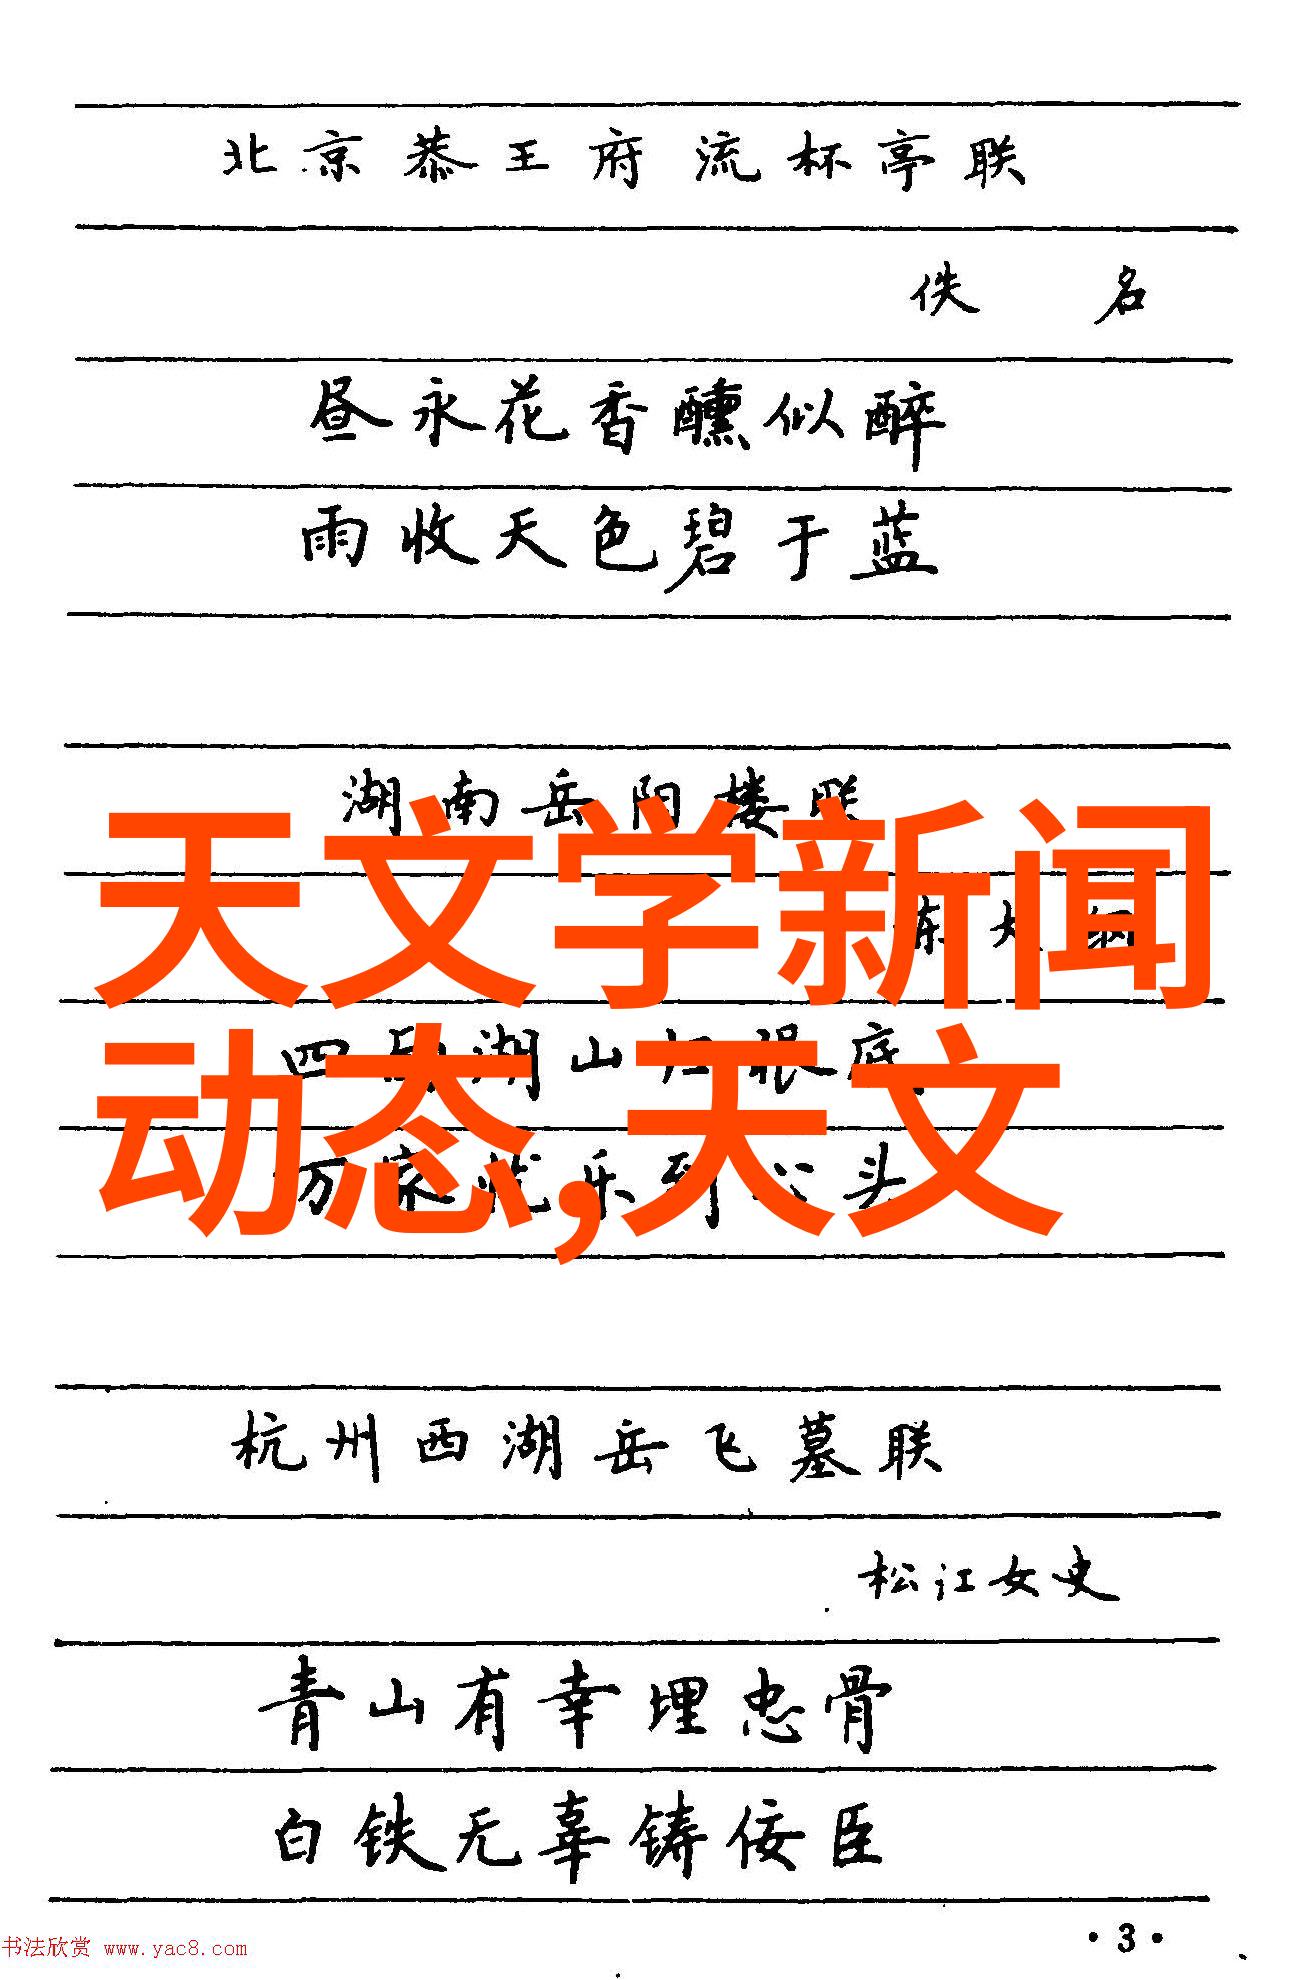 北京恭王府流杯亭联
佚名
昼永花香醺似醉
雨收天色碧于蓝
湖南岳阳楼联
天文学新闻
动态,天文
四面湖山归眼底
万家忧乐到心头
杭州西湖岳飞墓联
松江女史
青山有幸埋忠骨
白铁无辜铸佞臣
·3·
书法欣赏 www.yac8.com